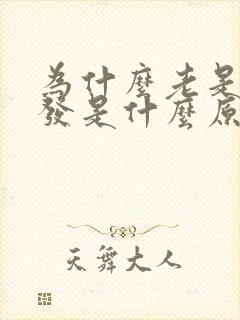 為什麼老是
發是什麼原
天舞大人